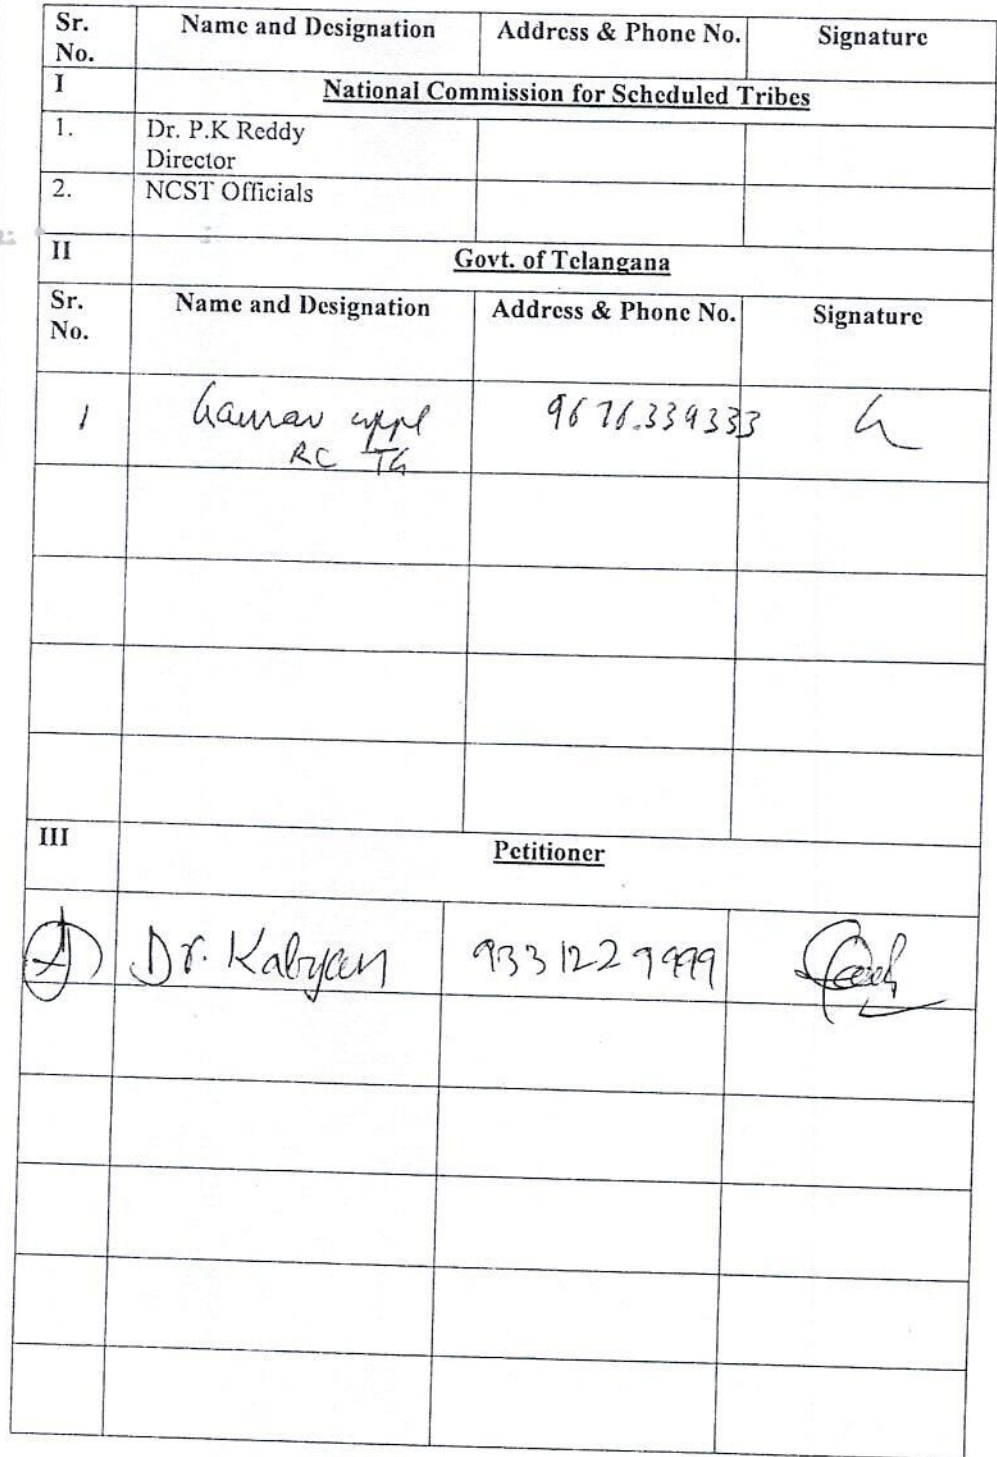 Sr. No. Name and Designation Address & Phone No. Signature
I National Commission for Scheduled Tribes
1. Dr. P.K Reddy
Director
2. NCST Officials
II Govt. of Telangana
Sr. No. Name and Designation Address & Phone No. Signature
1 Gaurav uppl 9676.339333
RC TG
III Petitioner
1 Dr. Kalyan 9331229999